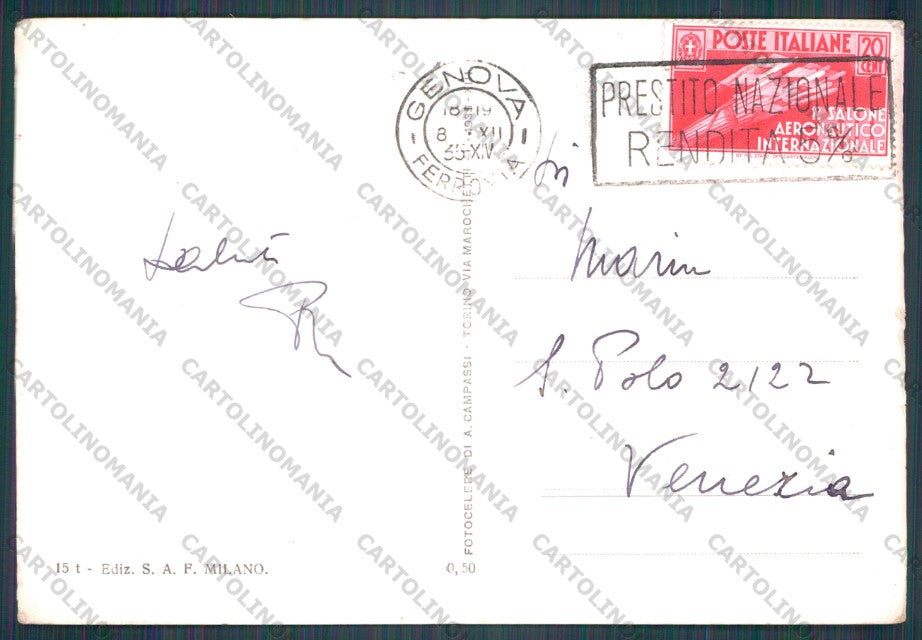 GENOVA
18-19
8 XII
35-XIV
FERROVIA
POSTE ITALIANE 20
CENT
1º SALONE
AERONAUTICO
INTERNAZIONALE
PRESTITO NAZIONALE
RENDITA 5%
Saluti
Marin
S. Polo 2122
Venezia
FOTOCELERE DI A. CAMPASSI - TORINO VIA MAROCHETTI
15 t - Ediz. S. A. F. MILANO.
0,50
CARTOLINOMANIA